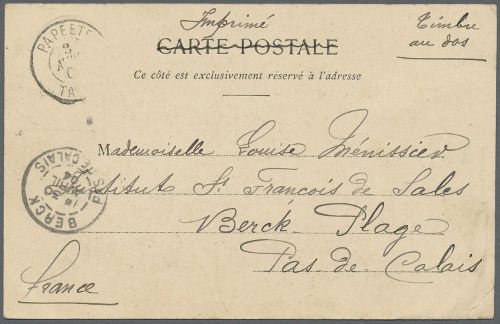 Imprimé
Timbre
au dos
CARTE POSTALE
Ce côté est exclusivement réservé à l'adresse
PAPEETE
TA
Mademoiselle Louise Ménissier
Institut St François de Sales
Berck-Plage
Pas-de-Calais
France
BERCK
PAS-DE-CALAIS